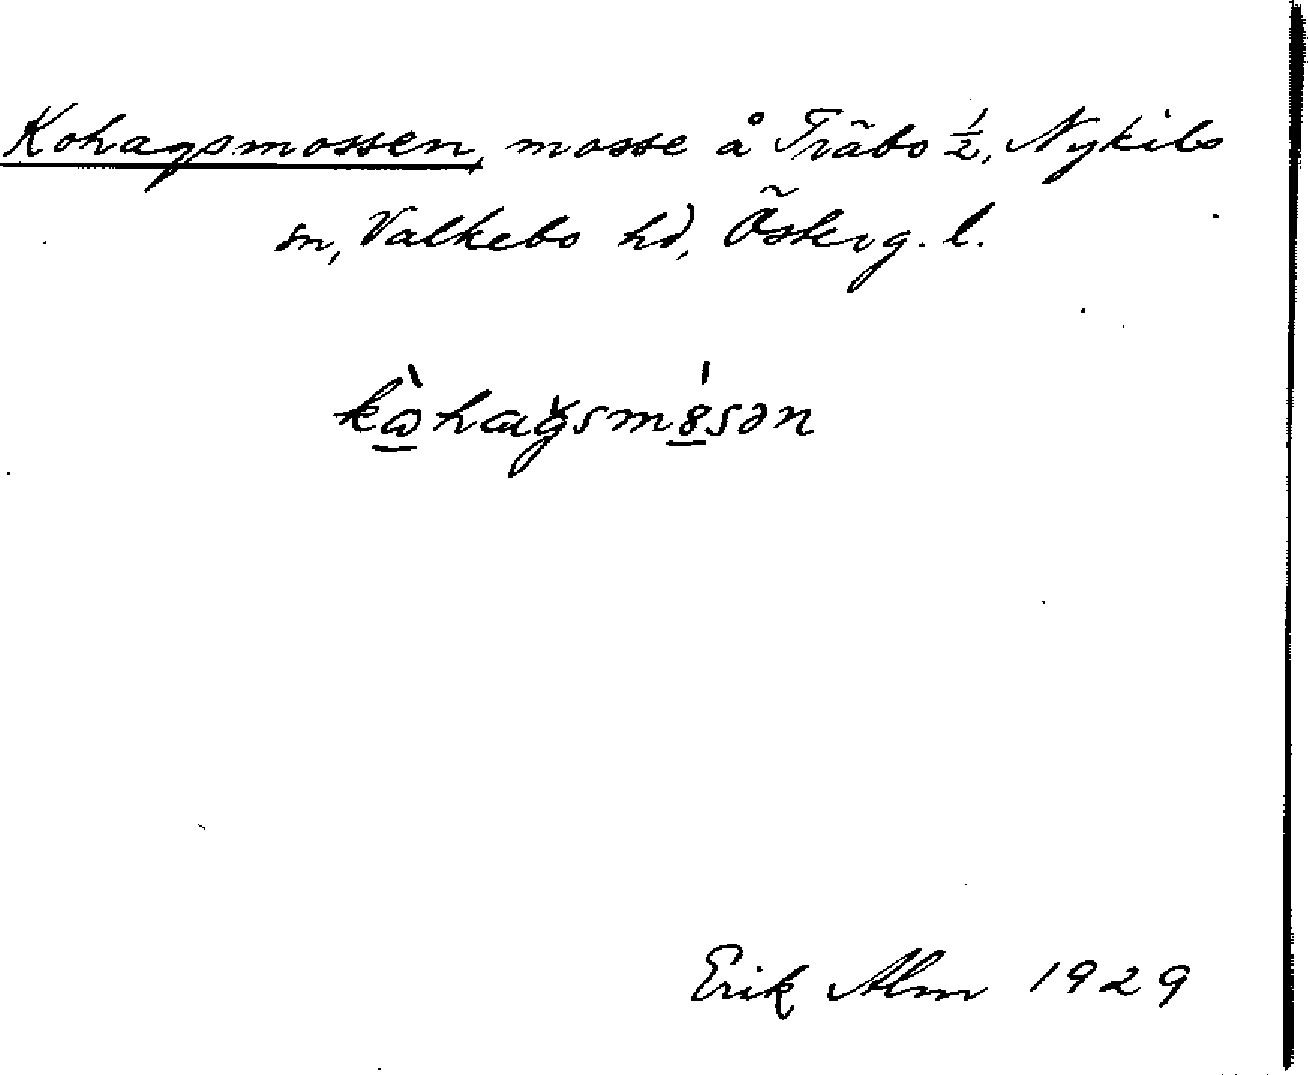 Kohagsmossen, mosse å Träbo ½, Nykils
sn, Valkebo hd, Österg. l.
kꞷ̀hagsmösən
Erik Alm 1929